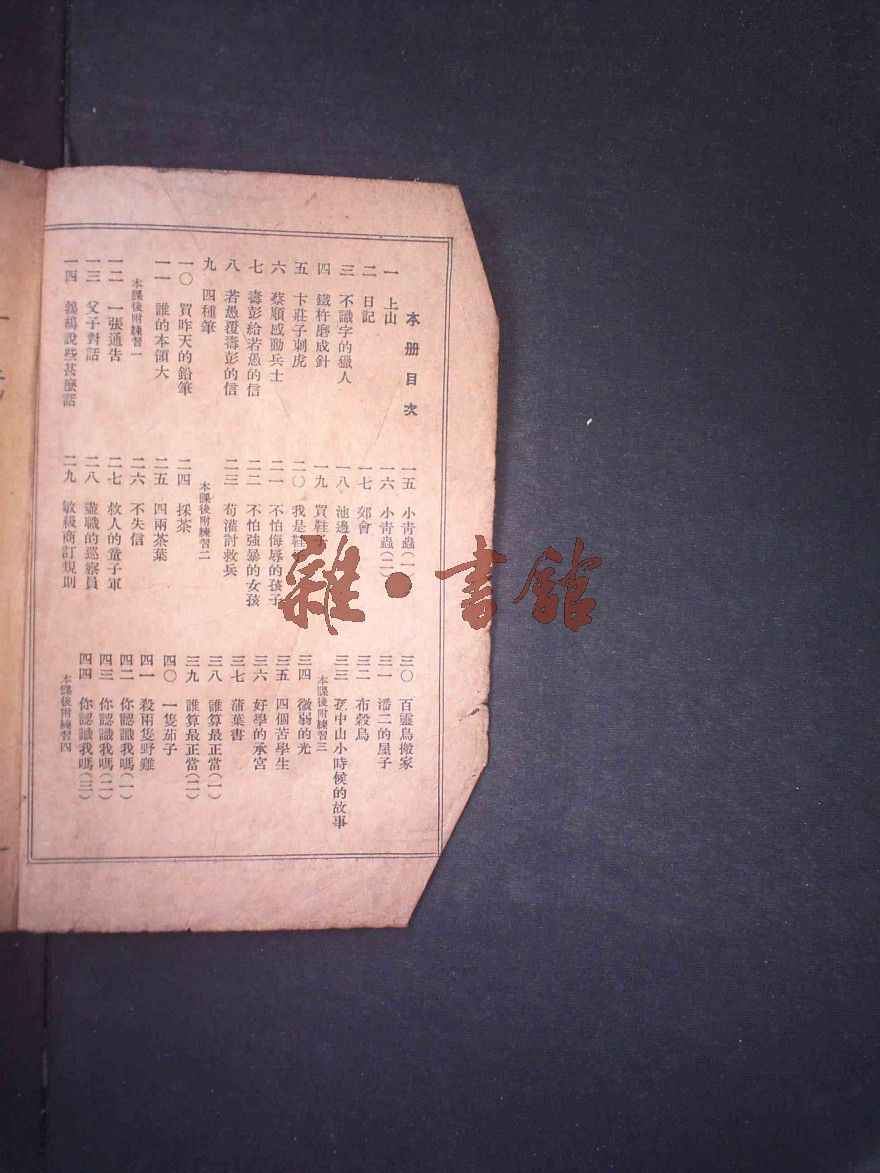 本册目次
一 上山
二 日記
三 不識字的獵人
四 鐵杵磨成針
五 卞莊子刺虎
六 蔡順感動兵士
七 壽彭給若愚的信
八 若愚覆壽彭的信
九 四種筆
一〇 買昨天的鉛筆
一一 誰的本領大
本課後附練習一
一二 一張通告
一三 父子對話
一四 鵓鴣說些甚麼話
一五 小青蟲(一)
一六 小青蟲(二)
一七 郊會
一八 池邊
一九 買鞋子
二〇 我是鞋
二一 不怕侮辱的孩子
二二 不怕強暴的女孩
二三 荀灌討救兵
本課後附練習二
二四 採茶
二五 四兩茶葉
二六 不失信
二七 救人的童子軍
二八 盡職的巡察員
二九 敏級商訂規則
三〇 百靈鳥搬家
三一 潘二的屋子
三二 布穀鳥
三三 孫中山小時候的故事
本課後附練習三
三四 微弱的光
三五 四個苦學生
三六 好學的承宮
三七 蒲葉書
三八 誰算最正當(一)
三九 誰算最正當(二)
四〇 一隻茄子
四一 殺兩隻野雞
四二 你認識我嗎(一)
四三 你認識我嗎(二)
四四 你認識我嗎(三)
本課後附練習四
雜·書館